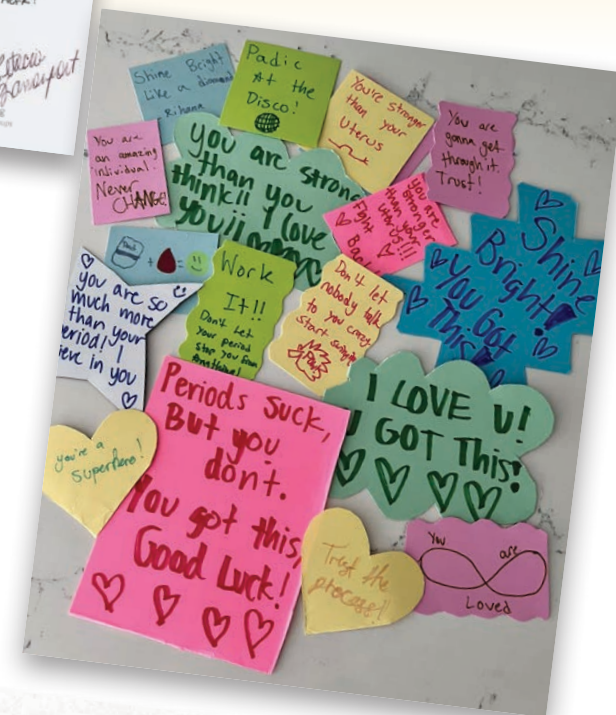 Shine Bright
Like a diamond
Rihana
Padic
At the
Disco!
You're stronger
than your
Uterus
You are
gonna get
through it.
Trust!
You are
an amazing
individual.
Never
CHANGE!
you are strong
than you
think¡¡ I love
you¡¡
You are
stronger
than your
uterus!!!
Fight
Back
Shine
Bright!
You Got
This!
+ =
you are so
much more
than your
period! I
ieve in you
Work
It!!
Don't Let
Your period
Stop you from
Anything!
Don't let
nobody talk
to you crazy
start swinging
Periods Suck,
But you
dont.
You got this,
Good Luck!
I LOVE U!
U GOT This!
you're a
superhero!
Trust the
process!
You are
Loved